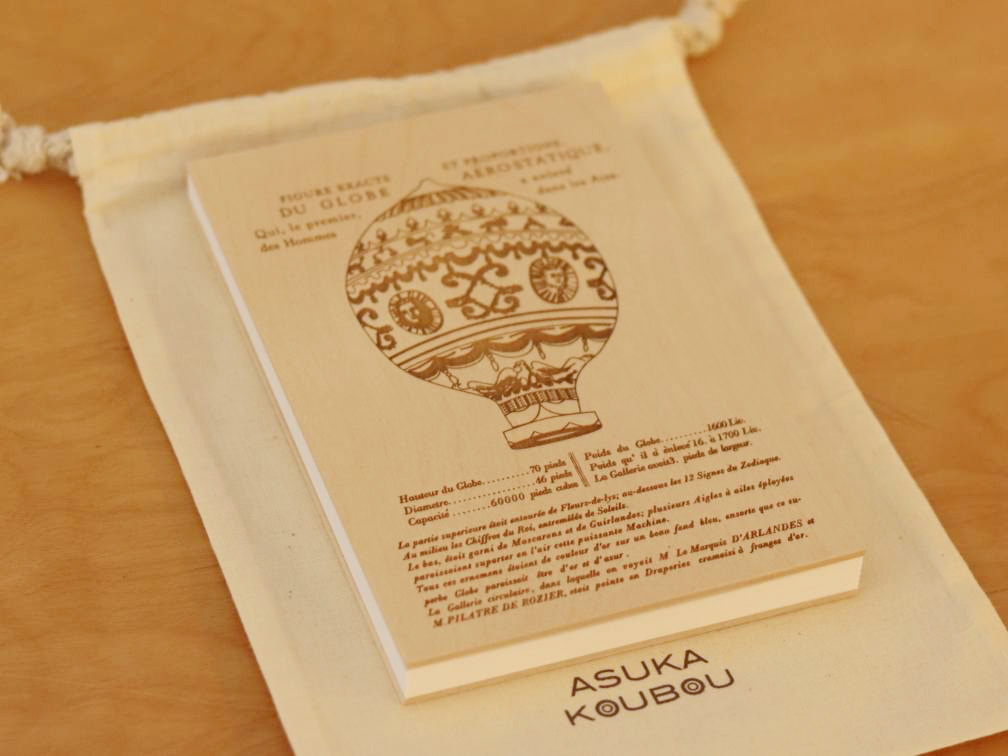 FIGURE EXACTE
DU GLOBE
Qui, le premier,
des Hommes
ET PROPORTIONS,
AËROSTATIQUE,
a enlevé
dans les Airs.
Hauteur du Globe..........70 pieds
Diametre....................46 pieds
Capacité.......60000 pieds cubes
Poids du Globe..........1600 Liv.
Poids qu' il à énlevé 16. à 1700 Liv.
La Gallerie avoit3. pieds de largeur.
La partie superieure étoit entourée de Fleurs-de-lys; au-dessous les 12 Signes du Zodiaque.
Au milieu les Chiffres du Roi, entremêlés de Soleils.
Le bas, étoit garni de Mascarons et de Guirlandes; plusieurs Aigles à ailes éployées
paroissoient supporter en l'air cette puissante Machine.
Tous ces ornemens étoient de couleur d'or sur un beau fond bleu, ensorte que ce su-
perbe Globe paroissoit être d'or et d'azur.
La Gallerie circulaire, dans laquelle on voyoit M. Le Marquis D'ARLANDES et
M. PILATRE DE ROZIER, étoit peinte en Draperies cramoisi à franges d'or.
ASUKA
KOUBOU